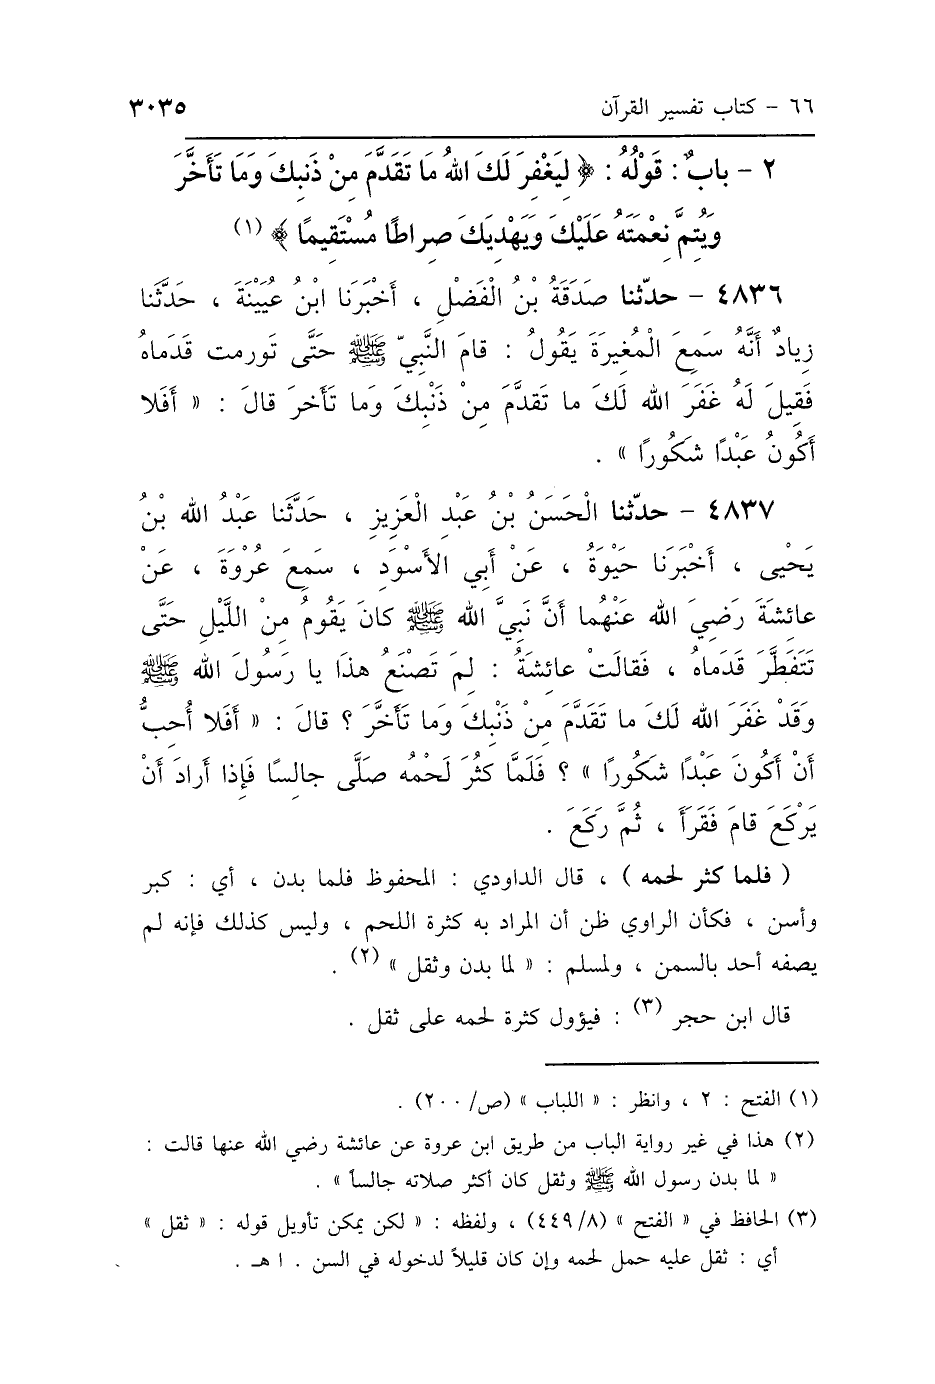 ٦٦ - كتاب تفسير القرآن ٣٠٣٥
٢ - بابٌ : قَوْلُهُ : ﴿ لِيَغْفِرَ لَكَ اللهُ مَا تَقَدَّمَ مِنْ ذَنبِكَ وَمَا تَأَخَّرَ
وَيُتِمَّ نِعْمَتَهُ عَلَيْكَ وَيَهْدِيَكَ صِراطًا مُسْتَقِيمًا ﴾ (١)
٤٨٣٦ - حدّثنا صَدَقَةُ بْنُ الْفَضْلِ ، أَخْبَرَنَا ابْنُ عُيَيْنَةَ ، حَدَّثَنا
زِيادٌ أَنَّهُ سَمِعَ الْمُغِيرَةَ يَقُولُ : قامَ النَّبِيّ ﷺ حَتَّى تَورمت قَدَماهُ
فَقِيلَ لَهُ غَفَرَ الله لَكَ ما تَقدَّمَ مِنْ ذَنْبِكَ وَما تَأَخرَ قالَ : « أَفَلا
أَكُونُ عَبْدًا شَكُورًا » .
٤٨٣٧ - حدّثنا الْحَسَنُ بْنُ عَبْدِ الْعَزِيزِ ، حَدَّثَنا عَبْدُ الله بْنُ
يَحْيى ، أَخْبَرَنا حَيْوَةُ ، عَنْ أَبِي الأَسْوَدِ ، سَمِعَ عُرْوَةَ ، عَنْ
عائِشَةَ رَضِيَ الله عَنْهُما أَنَّ نَبِيَّ الله ﷺ كانَ يَقُومُ مِنْ اللَّيْلِ حَتَّى
تَتَفَطَّرَ قَدَماهُ ، فَقالَتْ عائِشَةُ : لِمَ تَصْنَعُ هذَا يا رَسُولَ الله ﷺ
وَقَدْ غَفَرَ الله لَكَ ما تَقَدَّمَ مِنْ ذَنْبِكَ وَما تَأَخَّرَ ؟ قالَ : « أَفَلا أُحِبُّ
أَنْ أَكُونَ عَبْدًا شَكُورًا » ؟ فَلَمَّا كَثُرَ لَحْمُه صَلَّى جالِسًا فَإذا أَرادَ أَنْ
يَرْكَعَ قامَ فَقَرَأَ ، ثُمَّ رَكَعَ .
( فلما كثر لحمه ) ، قال الداودي : المحفوظ فلما بدن ، أي : كبر
وأسن ، فكأن الراوي ظن أن المراد به كثرة اللحم ، وليس كذلك فإنه لم
يصفه أحد بالسمن ، ولمسلم : « لما بدن وثقل » (٢) .
قال ابن حجر (٣) : فيؤول كثرة لحمه على ثقل .
(١) الفتح : ٢ ، وانظر : « اللباب » (ص/٢٠٠) .
(٢) هذا في غير رواية الباب من طريق ابن عروة عن عائشة رضي الله عنها قالت :
« لما بدن رسول الله ﷺ وثقل كان أكثر صلاته جالساً » .
(٣) الحافظ في « الفتح » (٤٤٩/٨) ، ولفظه : « لكن يمكن تأويل قوله : « ثقل »
أي : ثقل عليه حمل لحمه وإن كان قليلاً لدخوله في السن . ا هـ .